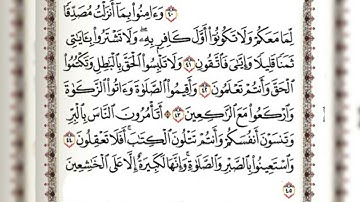 ٤٠ وَءَامِنُوا۟ بِمَآ أَنزَلْتُ مُصَدِّقًا
لِّمَا مَعَكُمْ وَلَا تَكُونُوٓا۟ أَوَّلَ كَافِرٍۭ بِهِۦ ۖ وَلَا تَشْتَرُوا۟ بِـَٔايَٰتِى
ثَمَنًا قَلِيلًا وَإِيَّٰىَ فَٱتَّقُونِ ٤١ وَلَا تَلْبِسُوا۟ ٱلْحَقَّ بِٱلْبَٰطِلِ وَتَكْتُمُوا۟
ٱلْحَقَّ وَأَنتُمْ تَعْلَمُونَ ٤٢ وَأَقِيمُوا۟ ٱلصَّلَوٰةَ وَءَاتُوا۟ ٱلزَّكَوٰةَ
وَٱرْكَعُوا۟ مَعَ ٱلرَّٰكِعِينَ ٤٣ أَتَأْمُرُونَ ٱلنَّاسَ بِٱلْبِرِّ
وَتَنسَوْنَ أَنفُسَكُمْ وَأَنتُمْ تَتْلُونَ ٱلْكِتَٰبَ ۚ أَفَلَا تَعْقِلُونَ ٤٤
وَٱسْتَعِينُوا۟ بِٱلصَّبْرِ وَٱلصَّلَوٰةِ ۚ وَإِنَّهَا لَكَبِيرَةٌ إِلَّا عَلَى ٱلْخَٰشِعِينَ
٤٥